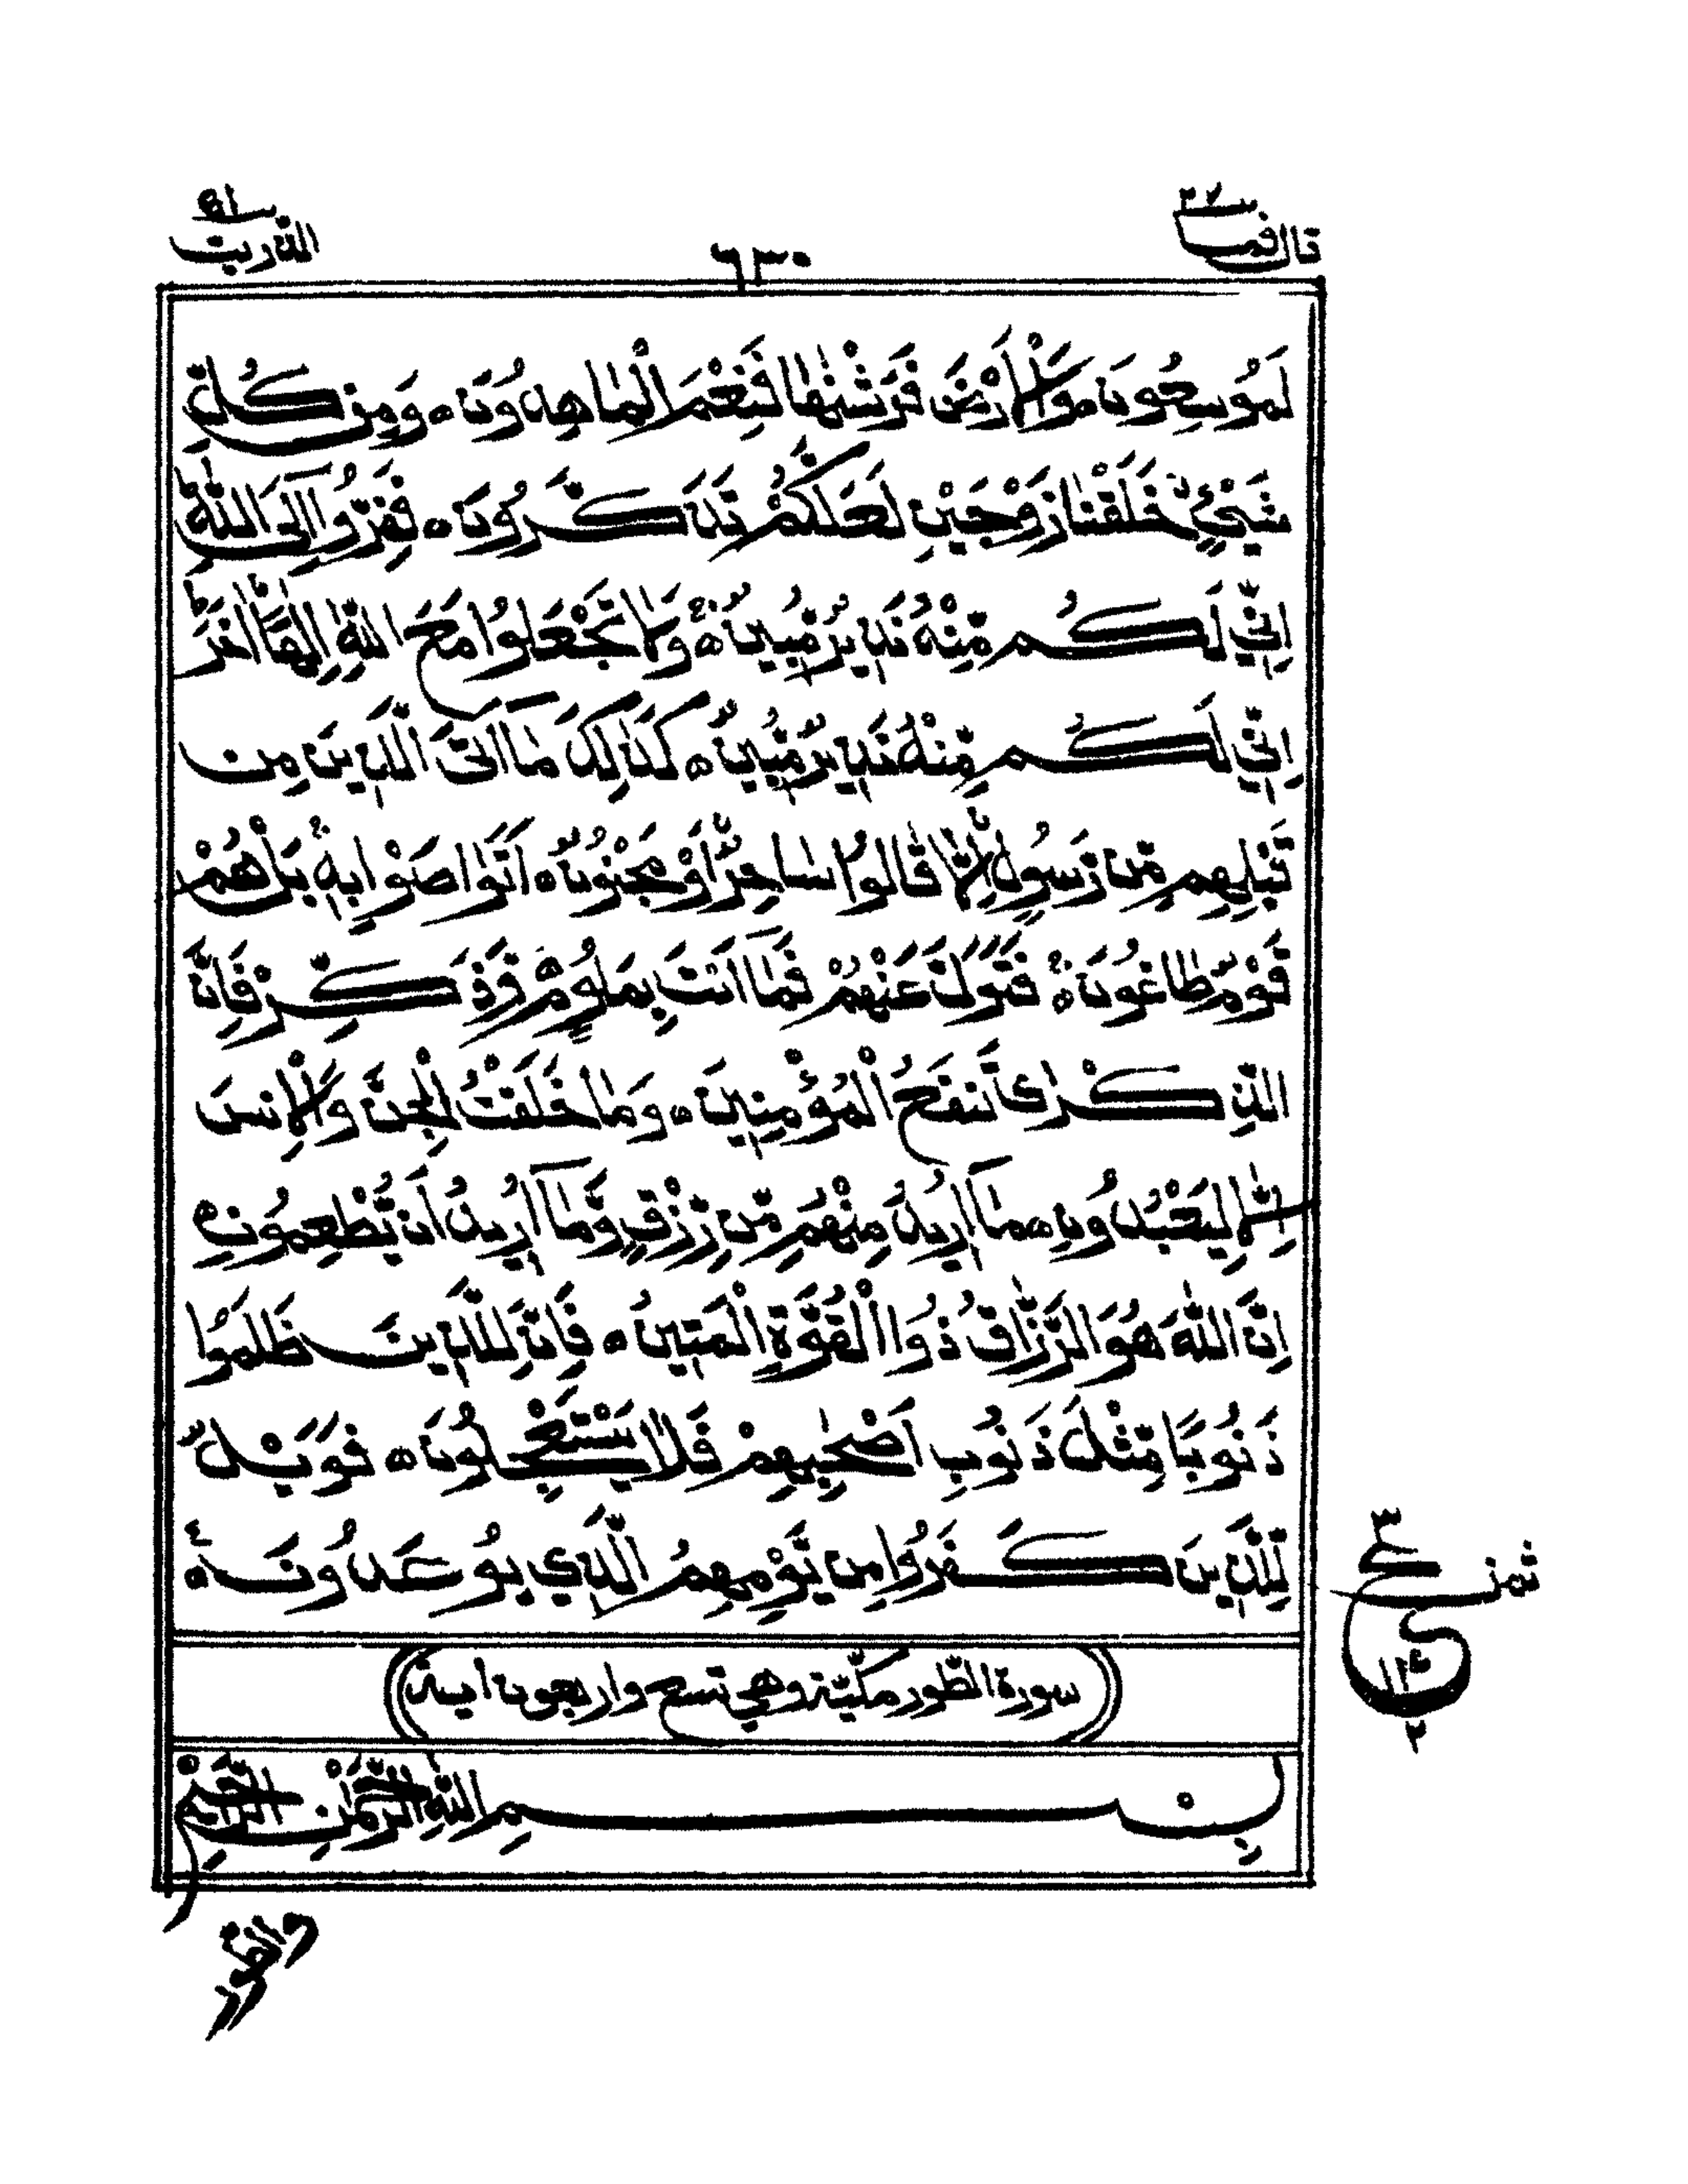 قال فما ٢٧
٦٣٠
الذريت ٥١
لَمُوْسِعُوْنَ ه وَالْاَرْضَ فَرَشْنٰهَا فَنِعْمَ الْمَاهِدُوْنَ ه وَمِنْ كُلِّ
شَيْءٍ خَلَقْنَا زَوْجَيْنِ لَعَلَّكُمْ تَذَكَّرُوْنَ ه فَفِرُّوْا اِلَى اللّٰهِ ط
اِنِّيْ لَكُمْ مِّنْهُ نَذِيْرٌ مُّبِيْنٌ ه وَلَا تَجْعَلُوْا مَعَ اللّٰهِ اِلٰهًا اٰخَرَ ط
اِنِّيْ لَكُمْ مِّنْهُ نَذِيْرٌ مُّبِيْنٌ ه كَذٰلِكَ مَا اَتَى الَّذِيْنَ مِنْ
قَبْلِهِمْ مِّنْ رَّسُوْلٍ اِلَّا قَالُوْا سَاحِرٌ اَوْ مَجْنُوْنٌ ه اَتَوَاصَوْا بِهٖ ج بَلْ هُمْ
قَوْمٌ طَاغُوْنَ ه فَتَوَلَّ عَنْهُمْ فَمَا اَنْتَ بِمَلُوْمٍ ه وَّذَكِّرْ فَاِنَّ
الذِّكْرٰى تَنْفَعُ الْمُؤْمِنِيْنَ ه وَمَا خَلَقْتُ الْجِنَّ وَالْاِنْسَ
اِلَّا لِيَعْبُدُوْنِ ه مَا اُرِيْدُ مِنْهُمْ مِّنْ رِّزْقٍ وَّمَا اُرِيْدُ اَنْ يُّطْعِمُوْنِ ه
اِنَّ اللّٰهَ هُوَ الرَّزَّاقُ ذُوا الْقُوَّةِ الْمَتِيْنُ ه فَاِنَّ لِلَّذِيْنَ ظَلَمُوْا
ذَنُوْبًا مِّثْلَ ذَنُوْبِ اَصْحٰبِهِمْ فَلَا يَسْتَعْجِلُوْنَ ه فَوَيْلٌ
لِّلَّذِيْنَ كَفَرُوْا مِنْ يَّوْمِهِمُ الَّذِيْ يُوْعَدُوْنَ ه ع
ثمن
٣
ع
٢
سورة الطور مكيّة وهي تسع واربعون اية
بِسْمِ اللّٰهِ الرَّحْمٰنِ الرَّحِيْمِ
والطور